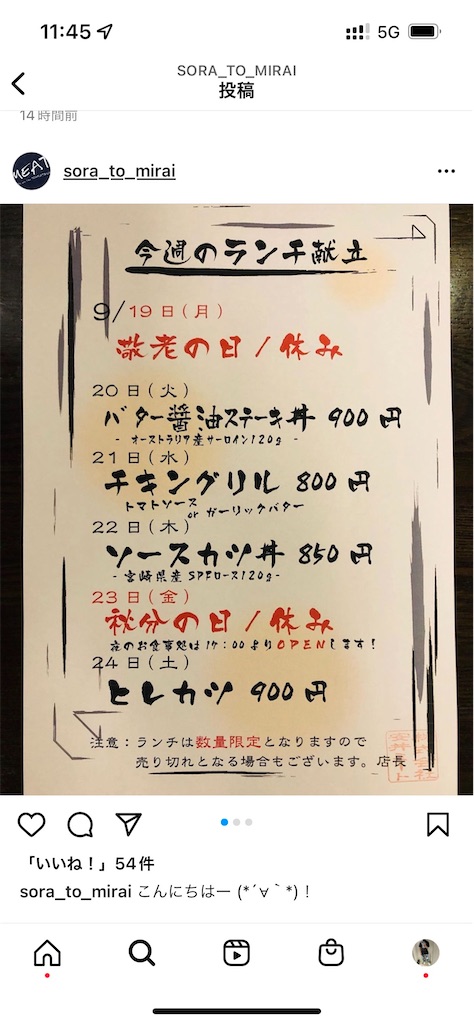 11:45
5G
SORA_TO_MIRAI
投稿
14時間前
MEAT
sora_to_mirai
今週のランチ献立
9/19日(月)
敬老の日/休み
20日(火)
バター醤油ステーキ丼 900円
- オーストラリア産サーロイン120g -
21日(水)
チキングリル 800円
トマトソース or ガーリックバター
22日(木)
ソースカツ丼 850円
-宮崎県産SPFロース120g-
23日(金)
秋分の日/休み
夜のお食事処は17:00よりOPENします!
24日(土)
ヒレカツ 900円
注意:ランチは数量限定となりますので
売り切れとなる場合もございます。店長
「いいね!」54件
sora_to_mirai こんにちはー (*´∀`*)!